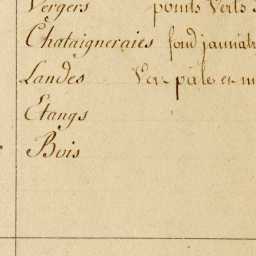 Vergers points Verts
Chataigneraies fond jaunât
Landes Ver pâle et m
Etangs
Bois